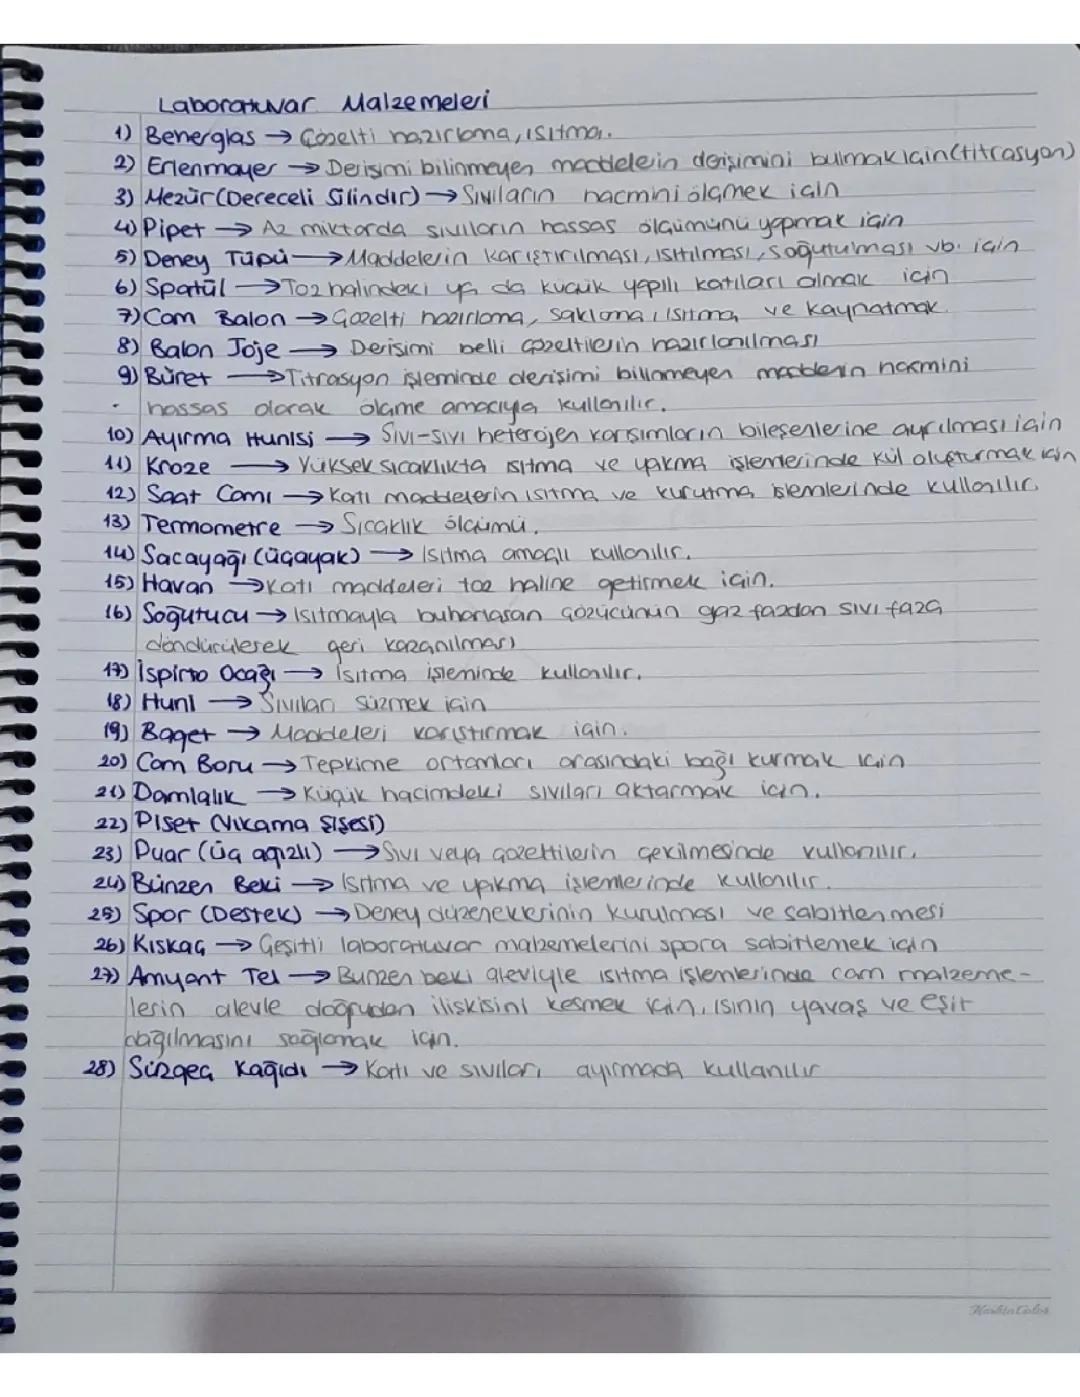 Laboratuvar Malzemeleri
1) Benerglas → Çözelti hazırlama, ısıtma.
2) Erlenmayer → Derişimi bilinmeyen maddelerin derişimini bulmak için (titrasyon)
3) Mezür (Dereceli Silindir) → Sıvıların hacmini ölçmek için
4) Pipet → Az miktarda sıvıların hassas ölçümünü yapmak için
5) Deney Tüpü → Maddelerin karıştırılması, ısıtılması, soğutulması vb. için
6) Spatül → Toz halindeki ya da küçük yapılı katıları almak için
7) Cam Balon → Çözelti hazırlama, saklama, ısıtma ve kaynatmak.
8) Balon Joje → Derişimi belli çözeltilerin hazırlanılması
9) Büret → Titrasyon işleminde derişimi bilinmeyen maddenin hacmini
hassas olarak ölçme amacıyla kullanılır.
10) Ayırma Hunisi → Sıvı-sıvı heterojen karışımların bileşenlerine ayrılması için
11) Kroze → Yüksek sıcaklıkta ısıtma ve yakma işlemlerinde kül oluşturmak için
12) Saat Camı → Katı maddelerin ısıtma ve kurutma işlemlerinde kullanılır.
13) Termometre → Sıcaklık ölçümü.
14) Sacayağı (üçayak) → Isıtma amaçlı kullanılır.
15) Havan → Katı maddeleri toz haline getirmek için.
16) Soğutucu → Isıtmayla buharlaşan çözücünün gaz fazdan sıvı faza
döndürülerek geri kazanılması
17) İspirto Ocağı → Isıtma işleminde kullanılır.
18) Huni → Sıvıları süzmek için
19) Baget → Maddeleri karıştırmak için.
20) Cam Boru → Tepkime ortamları arasındaki bağı kurmak için
21) Damlalık → Küçük hacimdeki sıvıları aktarmak için.
22) Piset (Yıkama Şişesi)
23) Puar (üç ağızlı) → Sıvı veya çözeltilerin çekilmesinde kullanılır.
24) Bünzen Beki → Isıtma ve yakma işlemlerinde kullanılır.
25) Spor (Destek) → Deney düzeneklerinin kurulması ve sabitlenmesi
26) Kıskaç → Çeşitli laboratuvar malzemelerini spora sabitlemek için
27) Amyant Tel → Bunzen beki aleviyle ısıtma işlemlerinde cam malzeme-
lerin alevle doğrudan ilişkisini kesmek için, ısının yavaş ve eşit
dağılmasını sağlamak için.
28) Süzgeç Kağıdı → Katı ve sıvıları ayırmada kullanılır